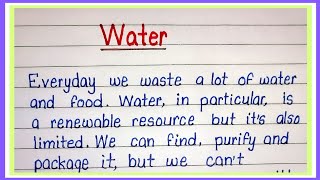 Water
Everyday we waste a lot of water
and food. Water, in particular, is
a renewable resource but it's also
limited. We can find, purify and
package it, but we can't
...